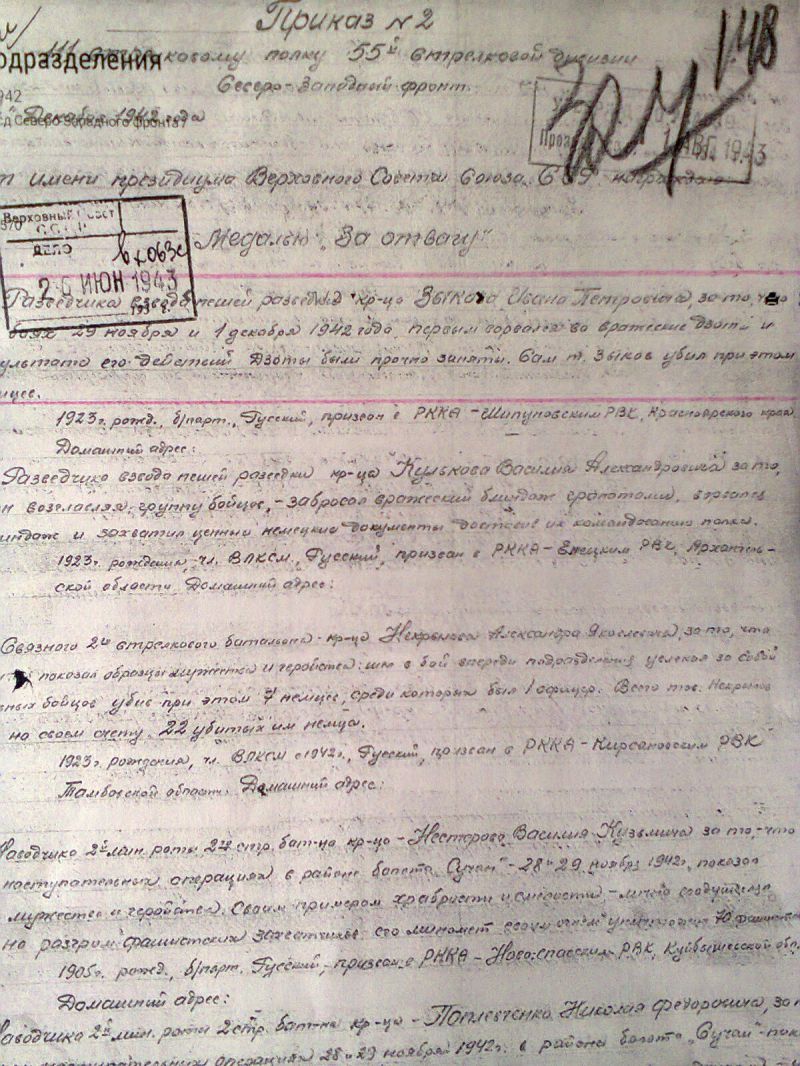 Приказ № 2
111 стрелковому полку 55й стрелковой дивизии
одразделения
Северо-Западный фронт.
942
Декабря 1942 года
д Северо-Западного фронта
148
АВГ. 1943
т имени президиума Верховного Совета Союза ССР награждаю
Верховный Совет
СССР
ДЕЛО
вх063с
26 ИЮН 1943
193 г.
Медалью „За отвагу"
Разведчика взвода пешей разведки кр-ца Зыкова Ивана Петровича, за то, что
боях 29 ноября и 1 декабря 1942 года, первым ворвался во вражеские дзоты и
ультате его действий дзоты были прочно заняты. Сам т. Зыков убил при этом
мцев.
1923 г. рожд., б/парт., Русский, призван в РККА - Шипуновским РВК, Красноярского края
Домашний адрес:
Разведчика взвода пешей разведки кр-ца Кулькова Василия Александровича за то,
н возглавляя, группу бойцов, - забросал вражеский блиндаж гранатами, ворвался
индаж и захватил ценные немецкие документы доставив их командованию полка.
1923 г. рождения, чл. ВЛКСМ, Русский, призван в РККА - Емецким РВК, Архангель-
ской области. Домашний адрес:
Связного 2го стрелкового батальона кр-ца Некрылова Александра Яковлевича, за то, что
показал образцы мужества и геройства: шел в бой впереди подразделения увлекая за собой
ных бойцов убив при этом 7 немцев, среди которых был 1 офицер. Всего тов. Некрылов
на своем счету 22 убитых им немца.
1923 г. рождения, чл. ВЛКСМ с 1942 г., Русский, призван в РККА - Кирсановским РВК
Тамбовской области. Домашний адрес:
Наводчика 2й мин. роты 2го стр. бат-на кр-ца - Нестерова Василия Кузьмича за то, - что
наступательных операциях в районе болота „Сучан" - 28 и 29 ноября 1942 г. показал
мужество и геройство. Своим примером храбрости и смелости, - лично воодушевлял
на разгром фашистских захватчиков. его миномет своим огнем уничтожил 10 фашистов
1905 г. рожд., б/парт. Русский, - призван в РККА - Ново-спасским РВК, Куйбышевской обл.
Домашний адрес:
Наводчика 2й мин. роты 2 стр. бат-на кр-ца - Поплевченко Николая Федоровича, за
наступательных операциях 28 и 29 ноября 1942 г. в районе болота „Сучан" - пока